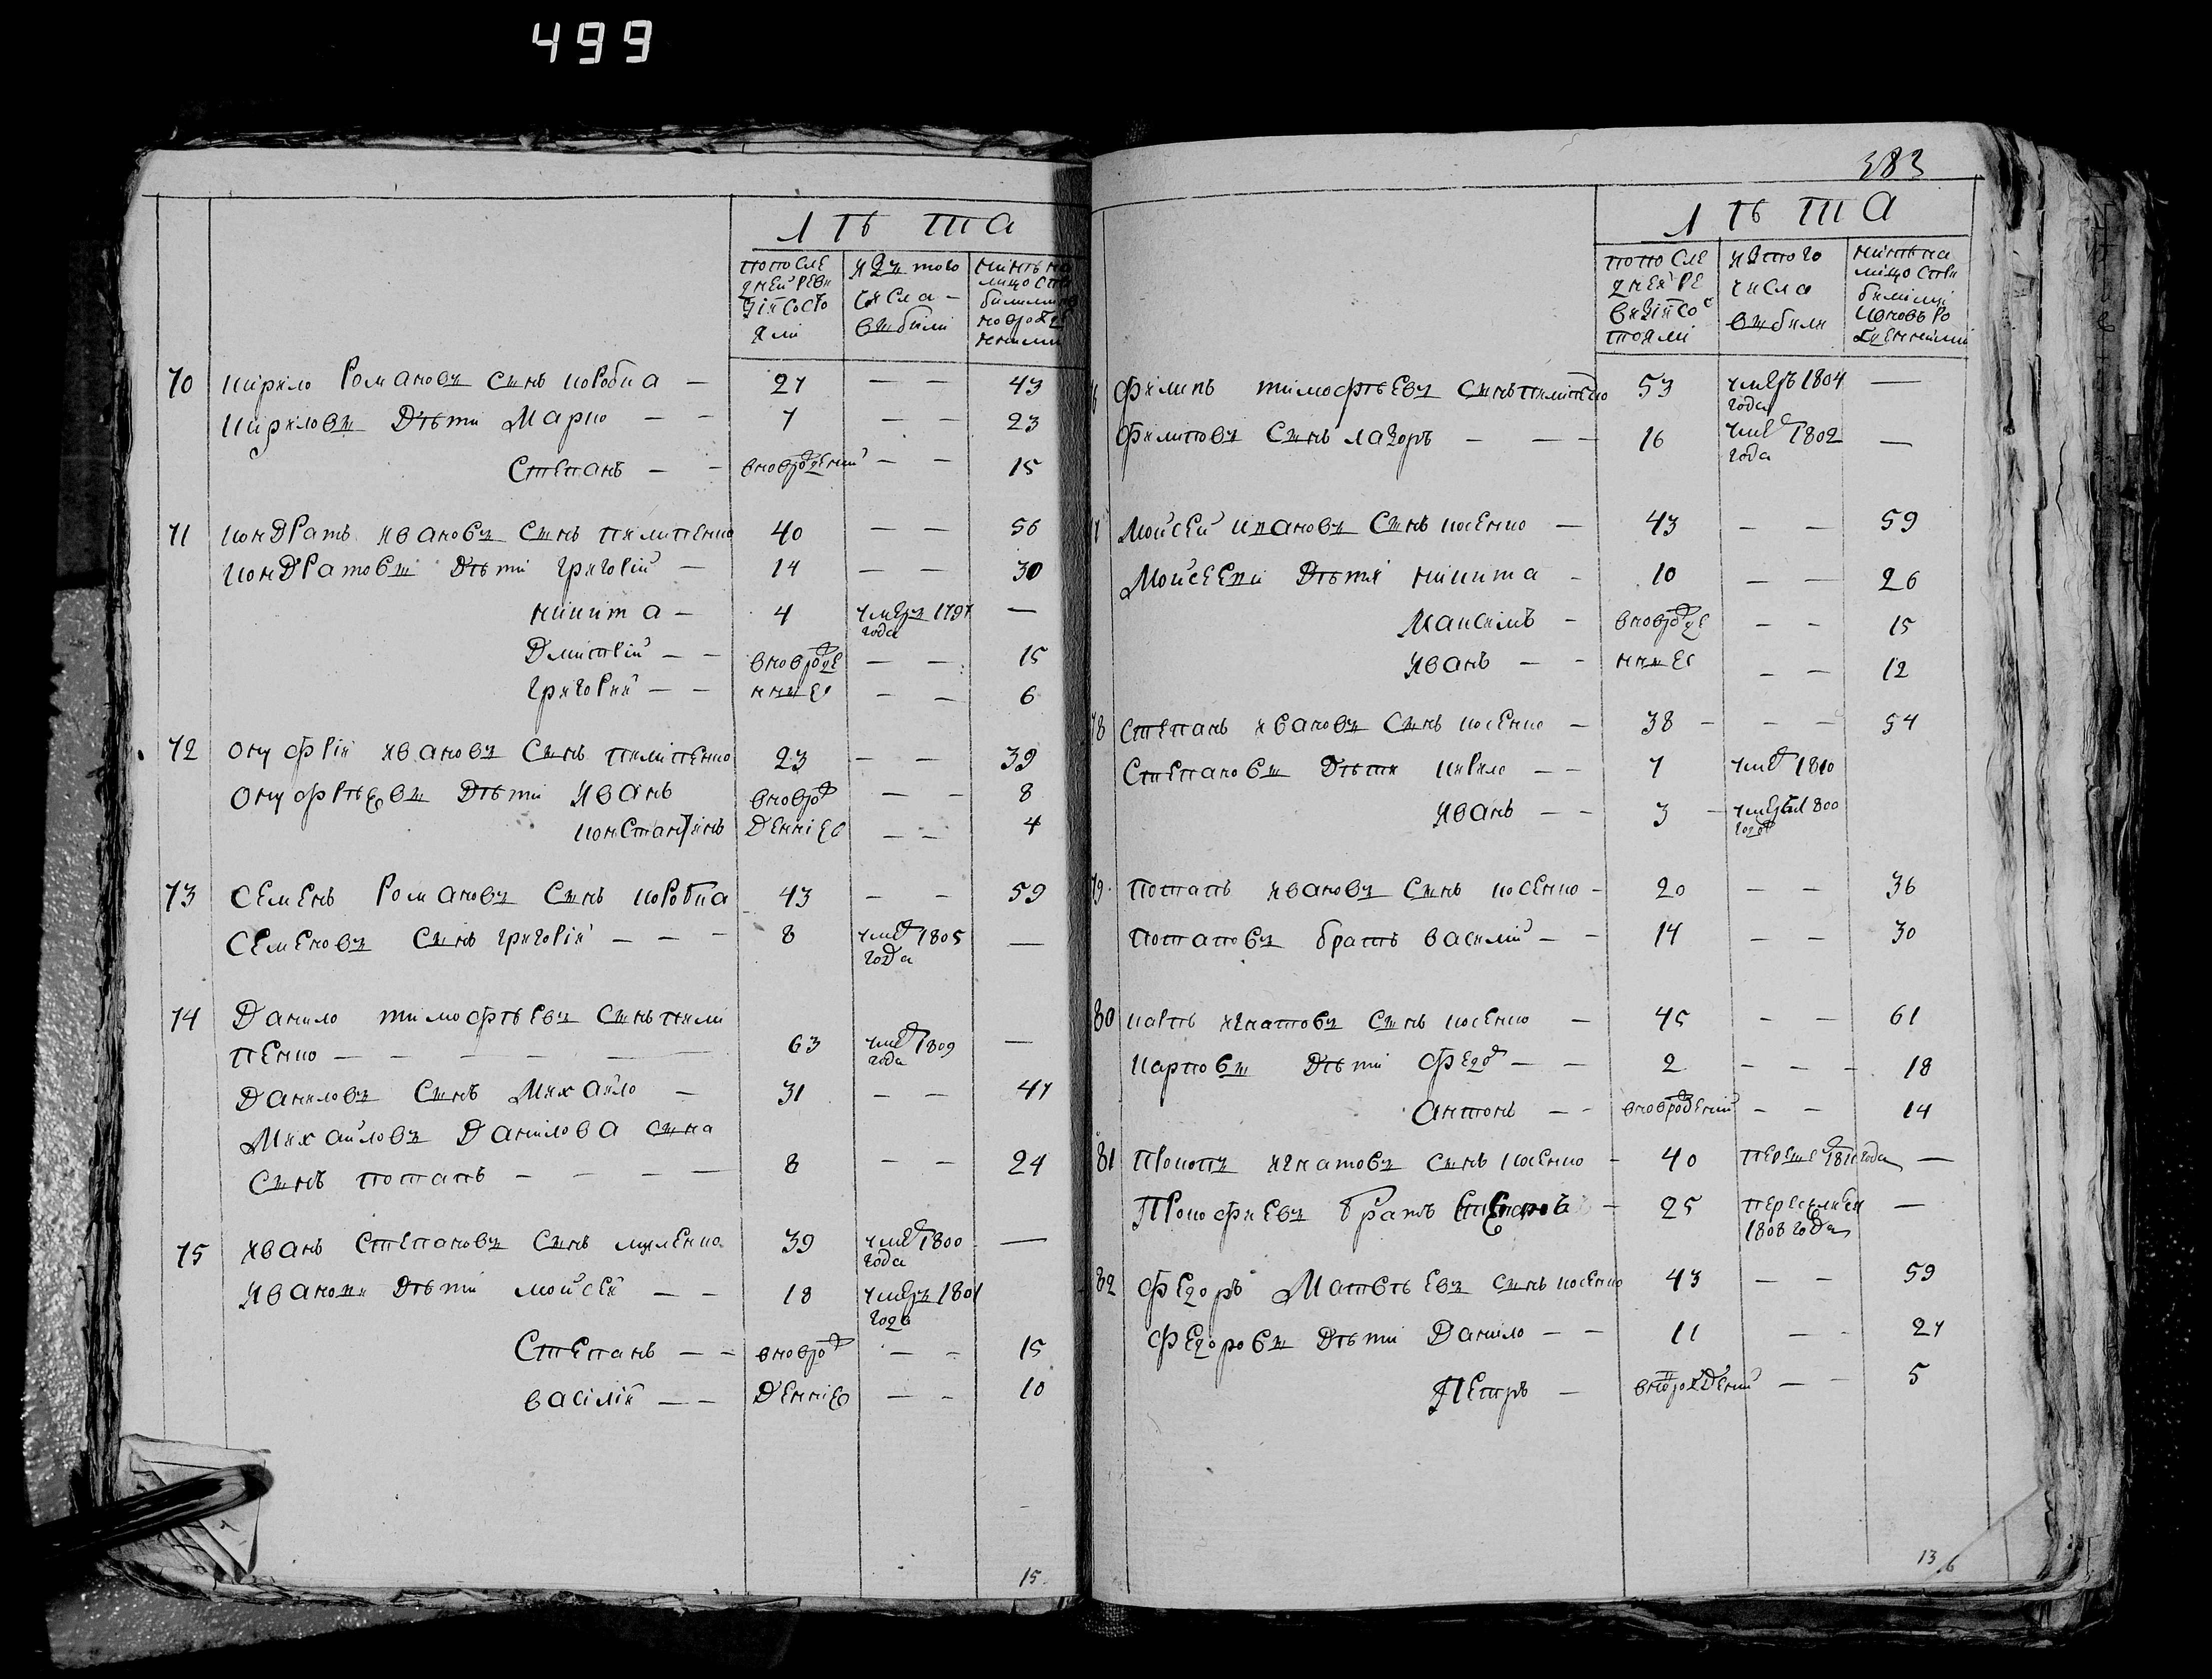 499
Лѣта
попосле
дней реви
зіи состо
яли
изъ того
числа
выбыли
нинѣ на
лицо
70 Кирило Романовъ сынъ коробка — 27 — — 43
Кириловы дѣти Марко — — 7 — — 23
Степанъ — — вноврожденый — — 15
71 Кондратъ Ивановъ сынъ пилипенко 40 — — 56
Кондратовы дѣти Григорій — 14 — — 30
Никита — 4 умеръ 1797 —
года
Дмитрій — — вновро​жде — — 15
Григорий — — нные — — 6
72 Онуфрій Ивановъ сынъ пилипенко 23 — — 39
Онуфрѣевы дѣти Иванъ вноврож — — 8
Константинъ денніе — — 4
73 Семенъ Романовъ сынъ коробка 43 — — 59
Семеновъ сынъ Григорій — — — 8 умер 1805 —
года
74 Данило тимофѣевъ сынъ пили
пенко — — — — — — 63 умер 1809 —
года
Даниловъ сынъ Михайло — 31 — — 47
Михайловъ Данилова сына
сынъ потапъ — — — — 8 — — 24
75 Иванъ Степановъ сынъ 39 умер 1800 —
года
Ивановы дѣти мойсей — — 18 умеръ 1801
года
Степанъ — — вноврож — — 15
василій — — денніе — — 10
15
383
Лѣта
попосле
дней ре
визіи со
стояли
изтого
числа
выбыли
нинѣ на
лицо
Филипъ тимофѣевъ сынъ пилипенко 53 умеръ 1804 —
года
Филиповъ сынъ лазоръ — — — 16 умер 1802 —
года
Мойсей Ивановъ сынъ косенко — 43 — — 59
Мойсееви дѣти никита — 10 — — 26
Максимъ — вноврожде — — 15
Иванъ — — нные — — 12
78 Степанъ Ивановъ сынъ косенко — 38 — — — 54
Степановы дѣти Кирило — — 7 умер 1810
Иванъ — — 3 — умеръ 1800
года
79 Потапъ Ивановъ сынъ косенко — 20 — — 36
Потаповъ братъ василий — — 14 — — 30
80 карпъ Игнатовъ сынъ косенко — 45 — — 61
Карповы дѣти Федор — — 2 — — — 18
Антонъ — — вноврожденый — — 14
81 Прокопъ Игнатовъ сынъ косенко — 40 1811 года —
Прокофиевъ братъ — 25 переселен —
1808 года
82 Федоръ Матвѣевъ сынъ косенко 43 — — 59
Федоровы дѣти Данило — — 11 — — 27
Петръ — вноврожденый — — 5
13
6